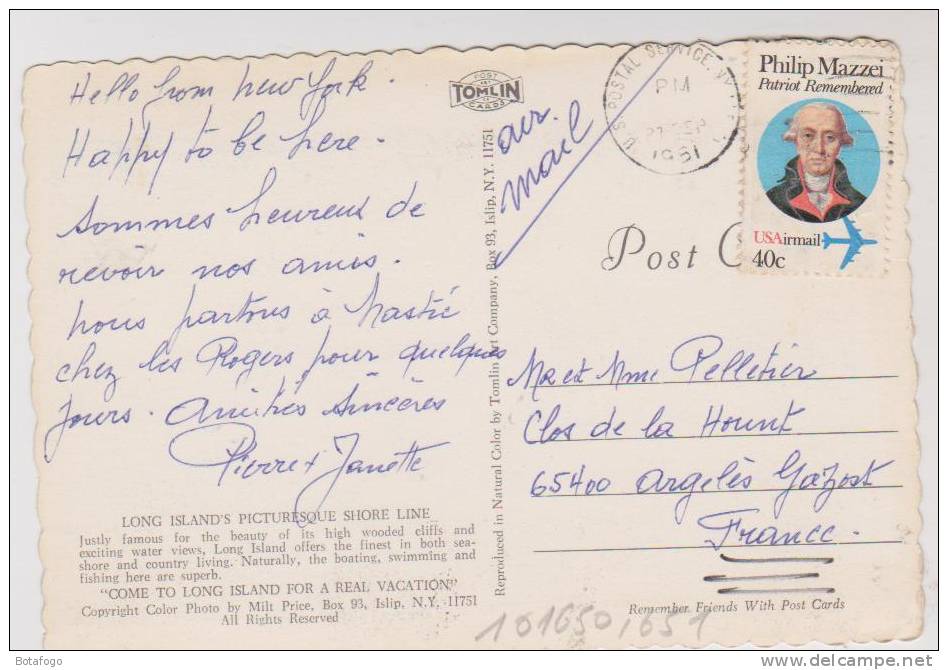 Hello from New York.
Happy to be here.
Sommes heureux de
revoir nos amis.
nous partons à Mastic
chez les Rogers pour quelques
jours. Amitiés sincères
Pierre + Janette
LONG ISLAND'S PICTURESQUE SHORE LINE
Justly famous for the beauty of its high wooded cliffs and
exciting water views, Long Island offers the finest in both sea-
shore and country living. Naturally, the boating, swimming and
fishing here are superb.
"COME TO LONG ISLAND FOR A REAL VACATION"
Copyright Color Photo by Milt Price, Box 93, Islip, N.Y. 11751
All Rights Reserved
POST
TOMLIN
CARDS
Reproduced in Natural Color by Tomlin Art Company, Box 93, Islip, N.Y. 11751
air.
mail
U.S. POSTAL SERVICE
PM
SEP
1981
Philip Mazzei
Patriot Remembered
USAirmail
40c
Post C
Mr et Mme Pelletier
Clos de la Hount
65400 Argelès Gazost
France.
Remember Friends With Post Cards
101650,651
Botafogo
www.delcampe.net